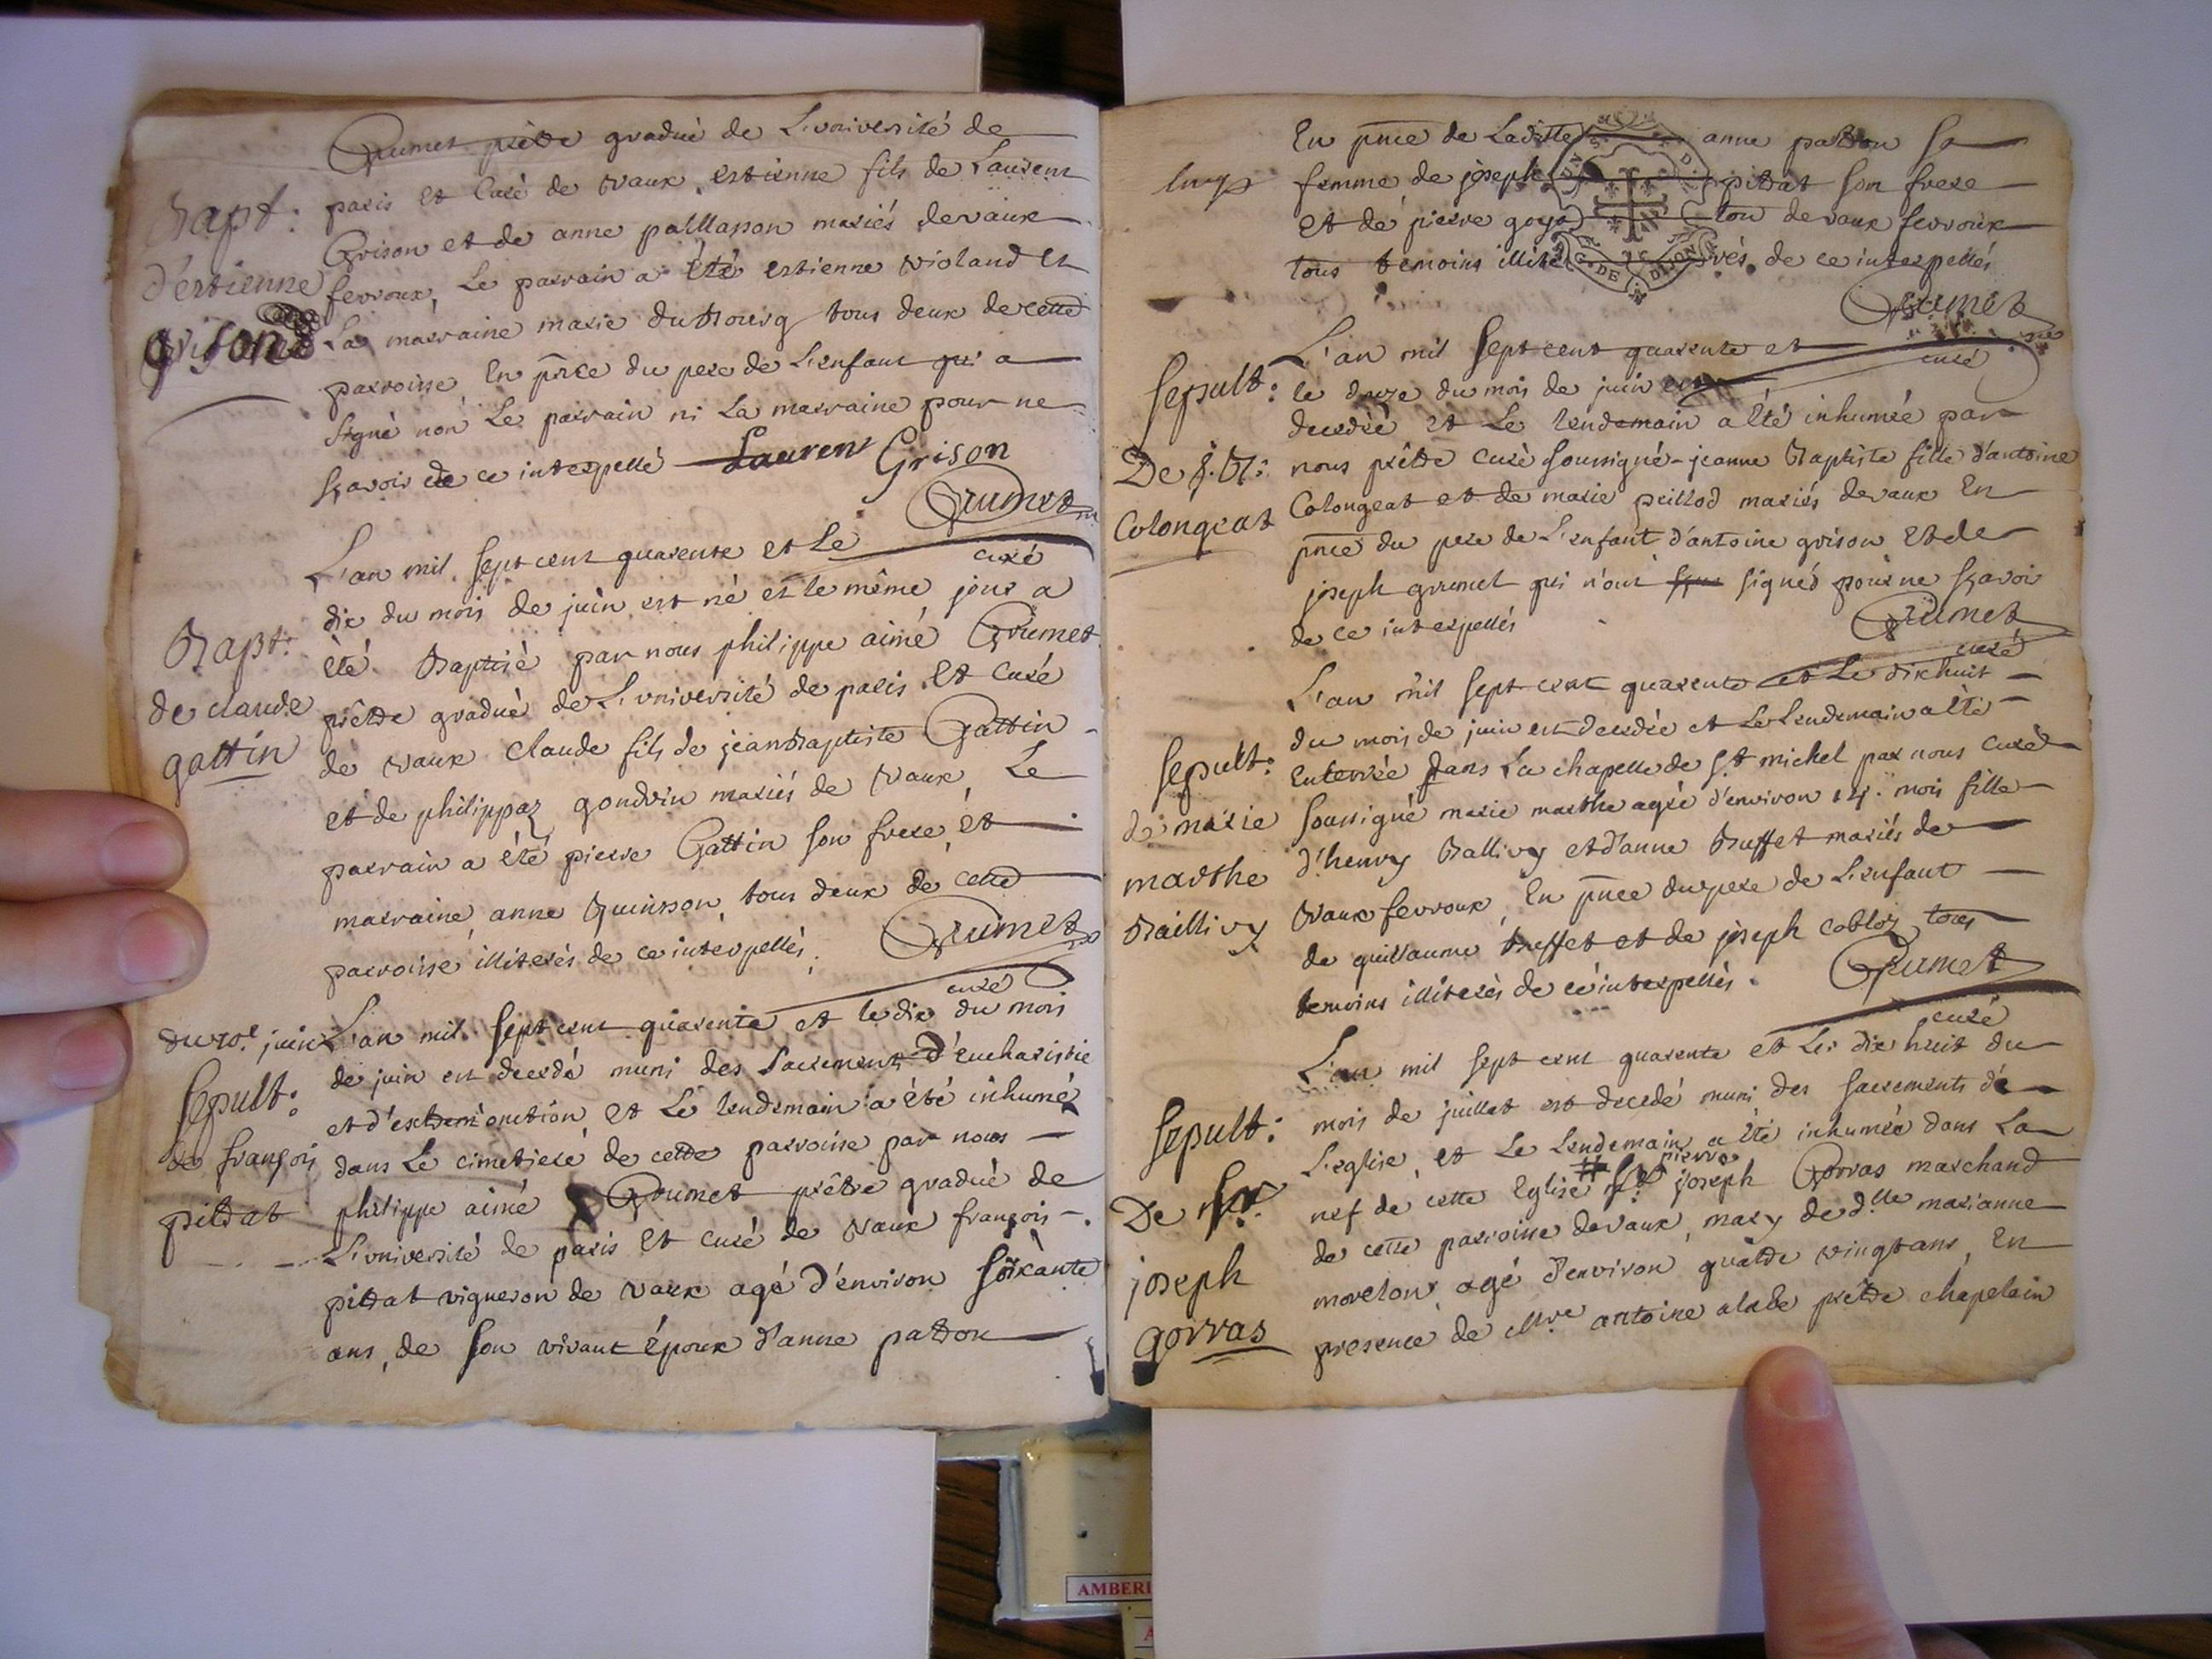 Grumet prêtre gradué de L'université de
paris et Curé de vaux, estienne fils de Laurent
Bapt:
Grison et de anne paillasson mariés de vaux
d'estienne
fevroux, Le parrain a été estienne violand et
grison
La marraine marie du Bourg tous deux de cette
parroisse, En pñce du pere de L'enfant qui a
signé non Le parrain ni La marraine pour ne
sçavoir de ce interpellé Lauren Grison
Grumet
curé
L'an mil sept cent quarente et Le
dix du mois de juin est né et le même jour a
été Baptisé par nous philippe aimé Grumet
Bapt:
prêtre gradué de L'université de paris et Curé
de claude
gattin
de vaux Claude fils de jean Baptiste Gattin
et de philippaz goudrin mariés de vaux, Le
parrain a été pierre Gattin son frere, et
marraine, anne Quinson, tous deux de cette
parroisse illiterés de ce interpellés. Grumet
curé
du 10e juin
L'an mil sept cent quarente et le dix du mois
de juin est decedé muni des Sacrements d'eucharistie
Sepult:
et d'extrem'onction, et Le lendemain a été inhumé
de françois
dans Le cimetiere de cette parroisse par nous
pitrat
philippe aimé Grumet prêtre gradué de
L'université de paris et curé de vaux françois
pitrat vigneron de vaux agé d'environ soixante
ans, de son vivant époux d'anne patron
En pñce de Laditte anne patron sa
femme de joseph pitrat son frere
et de pierre goya ton de vaux fevroux
tous temoins illite rés, de ce interpellés
Grumet
curé
L'an mil sept cent quarente et
Sepult:
le douze du mois de juin est
decedéé et Le lendemain a été inhumée par
De j. B:
nous prêtre curé soussigné jeanne Baptiste fille d'antoine
Colongeat
Colongeat et de marie peillod mariés de vaux En
pñce du pere de L'enfant d'antoine grison et de
joseph grumet qui n'ont signés pour ne sçavoir
de ce interpellés
Grumet
curé
L'an mil sept cent quarente et Le dixhuit
du mois de juin est decedée et Le Lendemain a été
Sepult:
Enterrée dans La chapelle de St michel par nous curé
de marie
soussigné marie marthe agée d'environ 14. mois fille
marthe
d'henry Ballivy et d'anne Buffet mariés de
Baillivy
vaux fevroux, En pñce du pere de L'enfant
de guillaume Buffet et de joseph Cobloz, tous
temoins illiterés de ce interpellés.
Grumet
curé
L'an mil sept cent quarente et Le dix huit du
mois de juillet est decedé muni des sacrements de
Sepult:
L'eglise, et Le Lendemain a été inhumée dans La
De Sr.
nef de cette Eglise # Sr pierre joseph Gorras marchand
joseph
de cette parroisse de vaux, mary de dlle marianne
gorras
morelon, agé d'environ quatre vingt ans, En
presence de Mre antoine alabe prêtre chapelain
G. DE DIJON
AMBERI